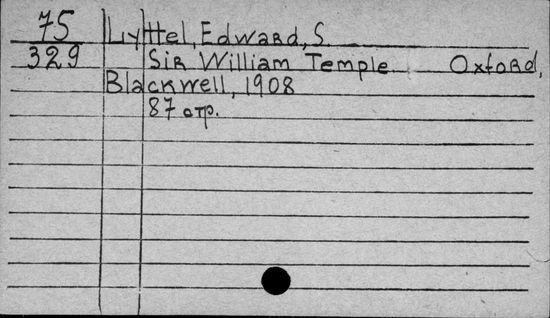 75 Lyttel, Edward, S.
329 Sir William Temple Oxford,
Blackwell, 1908
87 стр.